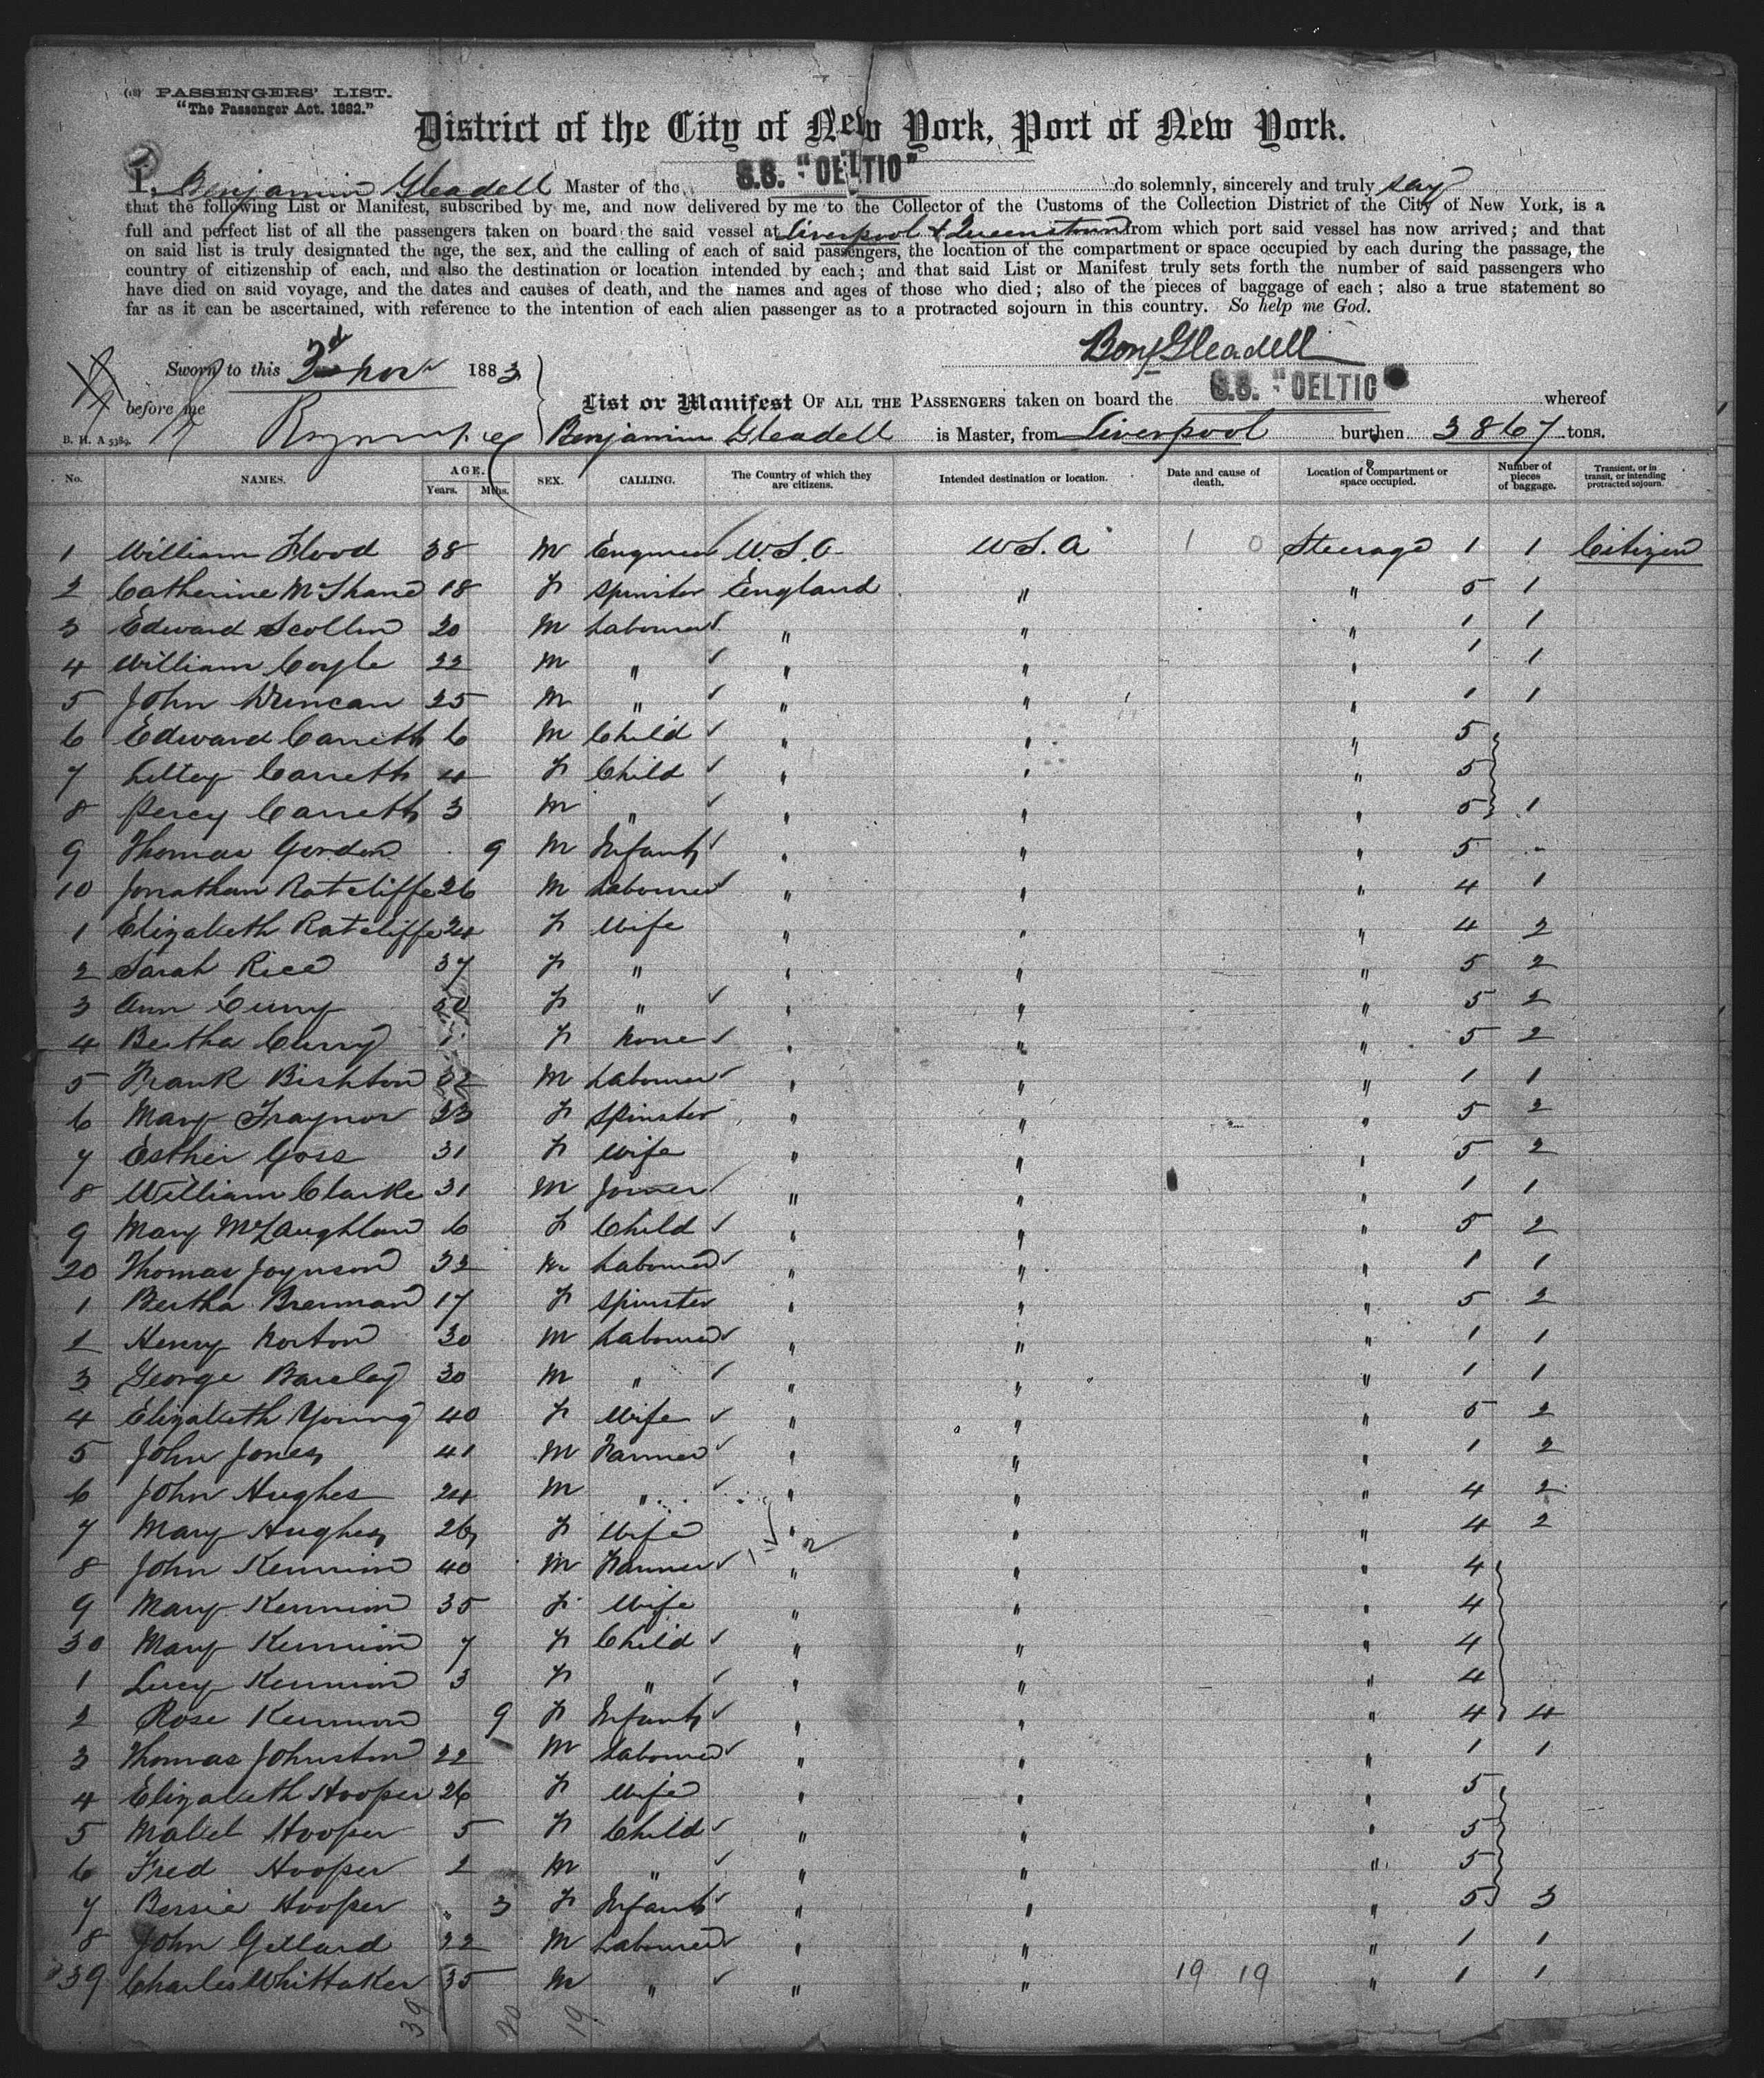 (18) PASSENGERS' LIST.
"The Passenger Act. 1882."
District of the City of New York, Port of New York.
I, Benjamin Gleadell Master of the S.S. "CELTIC" do solemnly, sincerely and truly say
that the following List or Manifest, subscribed by me, and now delivered by me to the Collector of the Customs of the Collection District of the City of New York, is a
full and perfect list of all the passengers taken on board the said vessel at Liverpool & Queenstown from which port said vessel has now arrived; and that
on said list is truly designated the age, the sex, and the calling of each of said passengers, the location of the compartment or space occupied by each during the passage, the
country of citizenship of each, and also the destination or location intended by each; and that said List or Manifest truly sets forth the number of said passengers who
have died on said voyage, and the dates and causes of death, and the names and ages of those who died; also of the pieces of baggage of each; also a true statement so
far as it can be ascertained, with reference to the intention of each alien passenger as to a protracted sojourn in this country. So help me God.
Benj Gleadell
Sworn to this 3rd Nov 1883
before me
List or Manifest OF ALL THE PASSENGERS taken on board the S.S. "CELTIC" whereof
B. H. A 5389. Benjamin Gleadell is Master, from Liverpool burthen 3867 tons.
No. NAMES. AGE. Years. Mths. SEX. CALLING. The Country of which they are citizens. Intended destination or location. Date and cause of death. Location of Compartment or space occupied. Number of pieces of baggage. Transient, or in transit, or intending protracted sojourn.
1 William Flood 38 M Engineer U.S.A. U.S.A 1 0 Steerage 1 1 Citizen
2 Catherine McShane 18 F Spinster England " " 5 1
3 Edward Scollin 20 M Labourer " " " 1 1
4 William Coyle 22 M " " " " 1 1
5 John Duncan 25 M " " " " 1 1
6 Edward Carreth 6 M Child " " " 5
7 Lettey Carreth 4 F Child " " " 5
8 Percy Carreth 3 M " " " " 5 1
9 Thomas Gordon 9 M Infant " " " 5 -
10 Jonathan Ratcliffe 26 M Labourer " " " 4 1
1 Elizabeth Ratcliffe 24 F Wife " " " 4 2
2 Sarah Rice 37 F " " " " 5 2
3 Ann Curry F " " " " 5 2
4 Bertha Curry F None " " " 5 2
5 Frank Bishton 32 M Labourer " " " 1 1
6 Mary Traynor 23 F Spinster " " " 5 2
7 Esther Goss 31 F Wife " " " 5 2
8 William Clarke 31 M Joiner " " " 1 1
9 Mary McLaughlan 6 F Child " " " 5 2
20 Thomas Joynson 32 M Labourer " " " 1 1
1 Bertha Brennan 17 F Spinster " " " 5 2
2 Henry Norton 30 M Labourer " " " 1 1
3 George Barclay 30 M " " " " 1 1
4 Elizabeth Young 40 F Wife " " " 5 2
5 John Jones 41 M Farmer " " " 1 2
6 John Hughes 24 M " " " " 4 2
7 Mary Hughes 26 F Wife " " " 4 2
8 John Kennion 40 M Farmer " " " 4
9 Mary Kennion 35 F Wife " " " 4
30 Mary Kennion 7 F Child " " " 4
1 Lucy Kennion 3 F " " " " 4
2 Rose Kennion 9 F Infant " " " 4 4
3 Thomas Johnston 22 M Labourer " " " 1 1
4 Elizabeth Hooper 26 F Wife " " " 5
5 Mabel Hooper 5 F Child " " " 5
6 Fred Hooper 2 M " " " " 5
7 Bessie Hooper " 3 F Infant " " " 5 3
8 John Gillard 22 M Labourer " " " 1 1
39 Charles Whittaker 35 M " " " 19 19 " 1 1
39 20 19